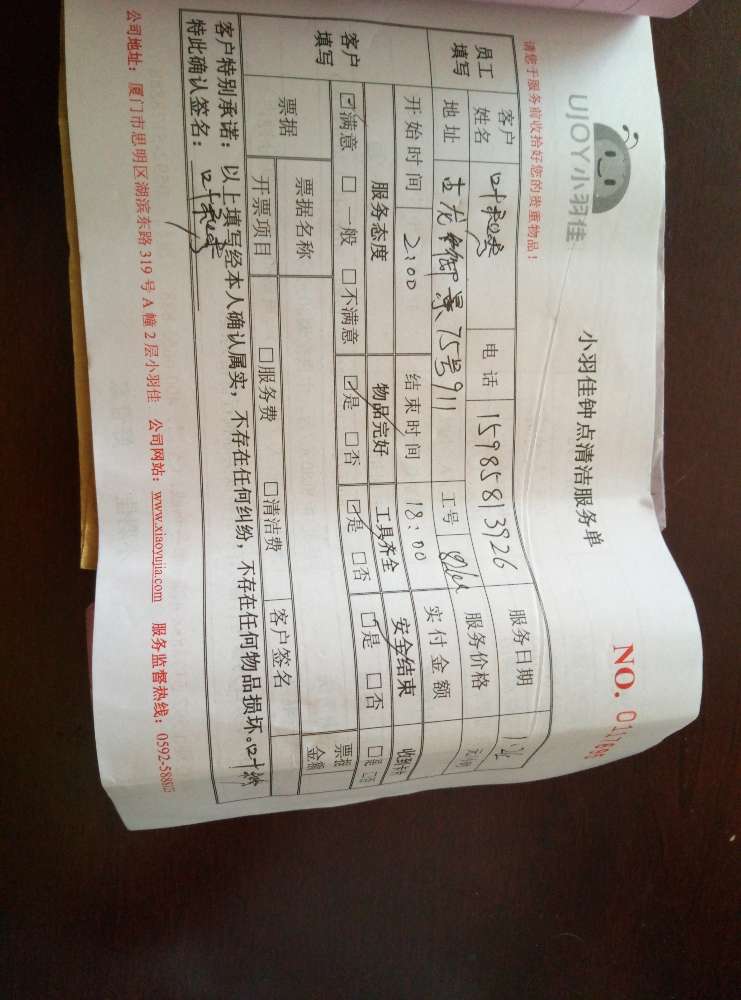 UJOY小羽佳
小羽佳钟点清洁服务单
NO.
请您于服务前收拾好您的贵重物品！
员工填写
客户姓名 叶 电话 15985813926 服务日期
地址 古龙御景75号911 工号 服务价格
开始时间 2:00 结束时间 18:00 实付金额
客户填写
服务态度 物品完好 工具齐全 安全结束
☑满意 □一般 □不满意 ☑是 □否 ☑是 □否 ☑是 □否
票据 票据名称 票据金额
开票项目 □服务费 □清洁费 客户签名
客户特别承诺：以上填写经本人确认属实，不存在任何纠纷，不存在任何物品损坏。
特此确认签名：叶
公司地址：厦门市思明区湖滨东路319号A幢2层小羽佳 公司网站：www.xiaoyujia.com 服务监督热线：0592-